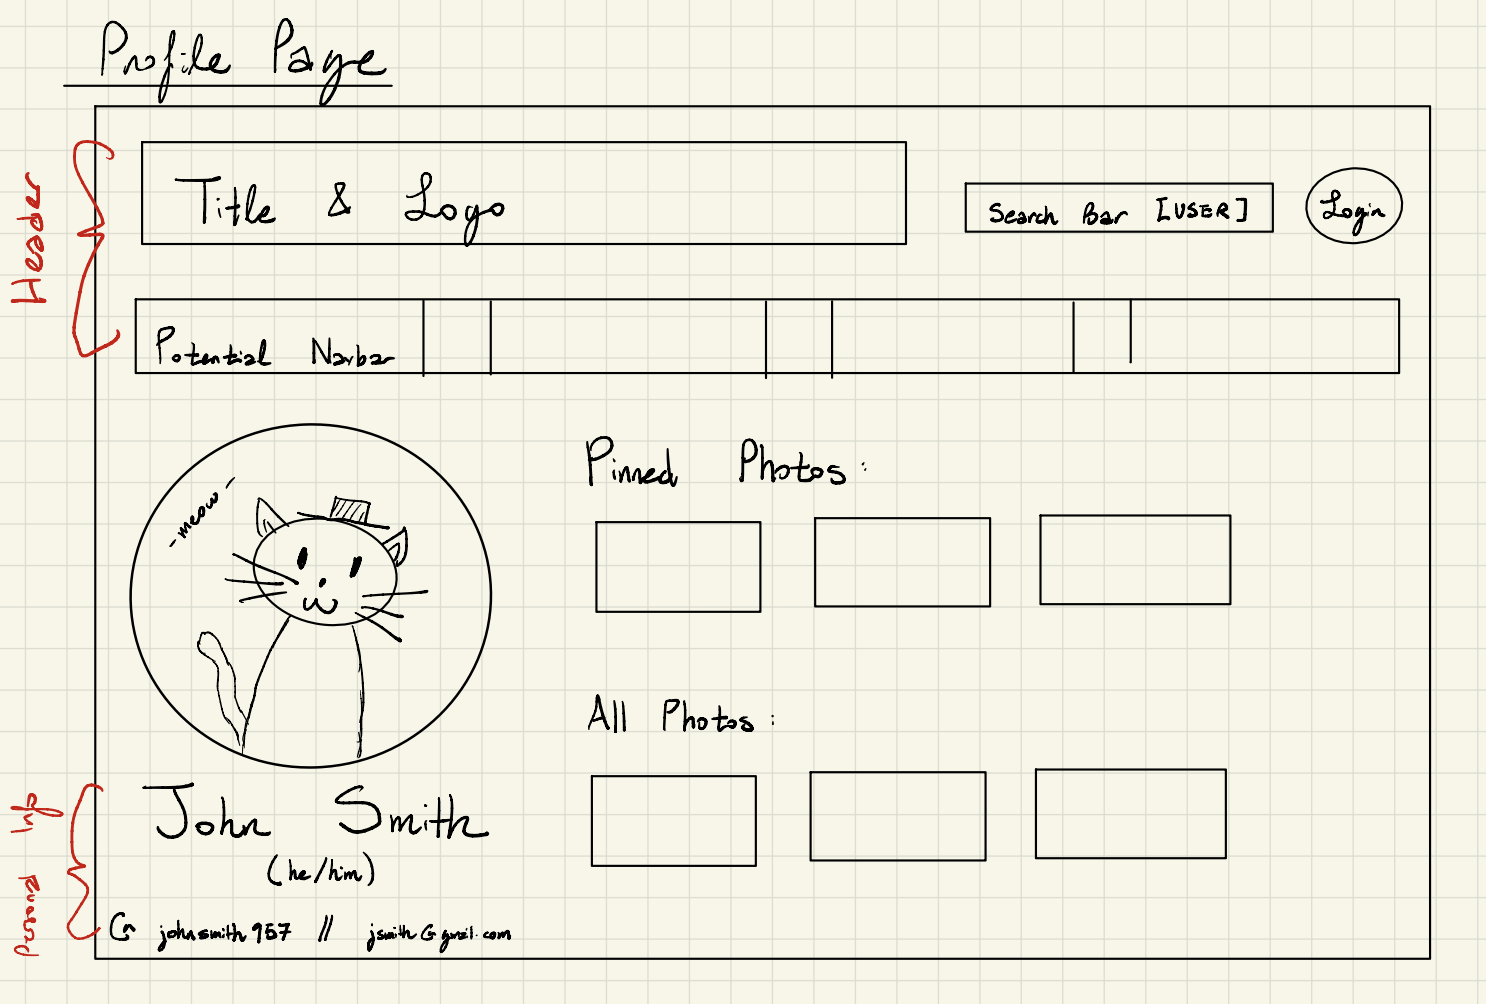 Profile Page
Header
Title & Logo
Search Bar [USER]
Login
Potential Navbar
-meow-
Pinned Photos:
All Photos:
Personal Info
John Smith
(he/him)
@ johnsmith957 // jsmith@gmail.com